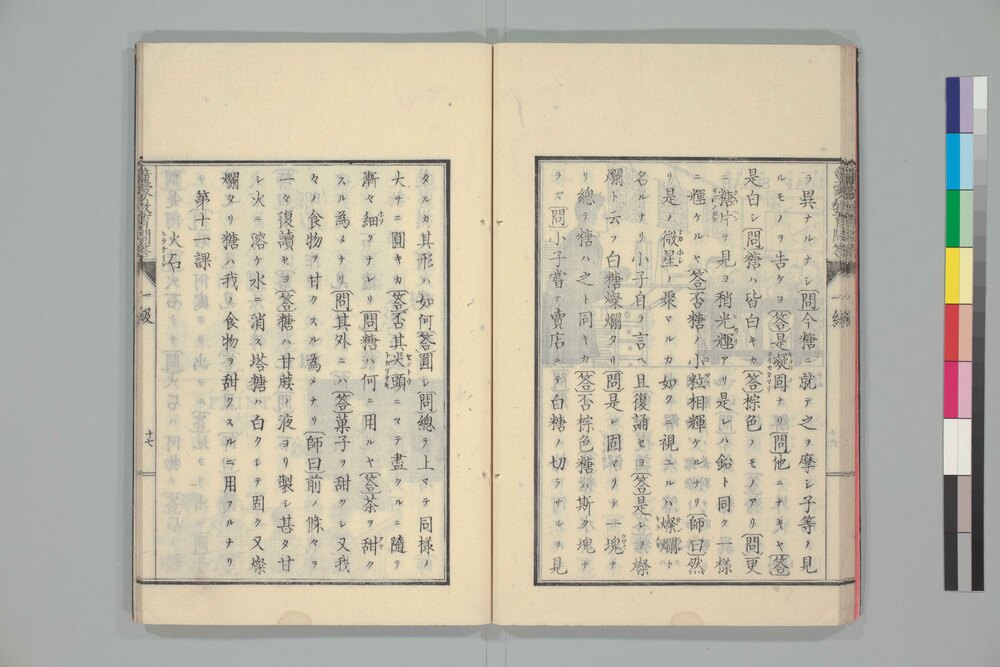 ラ異ナルナシ問今糖ニ就テ之ヲ摩シ子等ノ見
ルモノヲ告ケヨ答是凝固ナリ問他ニナキヤ答
是白シ問糖ハ皆白キカ答棕色ノモノアリ問更
ニ糖片ヲ見ヨ稍光輝アリ是レハ鉛ト同ク一様
ニ輝ケルヤ答否糖ノ小粒相輝ケルナリ師曰然
リ是ノ微星ノ聚マルカ如ク觧視ユルハ燦爛ト
名ルナリ小子自ラ言ヘ且復誦セヨ答是レヲ燦
爛ト云フ白糖燦爛タリ問是レ固マリテ一塊ナ
リ總テ糖ハ之ト同キカ答否棕色糖ハ斯ク塊ナ
ラズ問小子嘗テ賣店ニテ白糖ノ切ラザルヲ見
タルカ其形ハ如何答圓シ問總テ上マテ同様ノ
大サニ圓キカ答否其尖頭ニマテ盡クルニ隨テ
漸々細クナレリ問糖ハ何ニ用ルヤ答茶ヲ甜ク
スル為メナリ問其外ニハ答菓子ヲ甜クシ又我
々ノ食物ヲ甘クスル為メナリ師曰前ノ條々ヲ
一々復讀セヨ答糖ハ甘蔗ノ液ヨリ製シ甚タ甘
シ火ニ溶ケ水ニ消ス塔糖ハ白クシテ固ク又燦
爛タリ糖ハ我ノ食物ヲ甜クスルニ用フルナリ
第十一課
火石
一級
十七